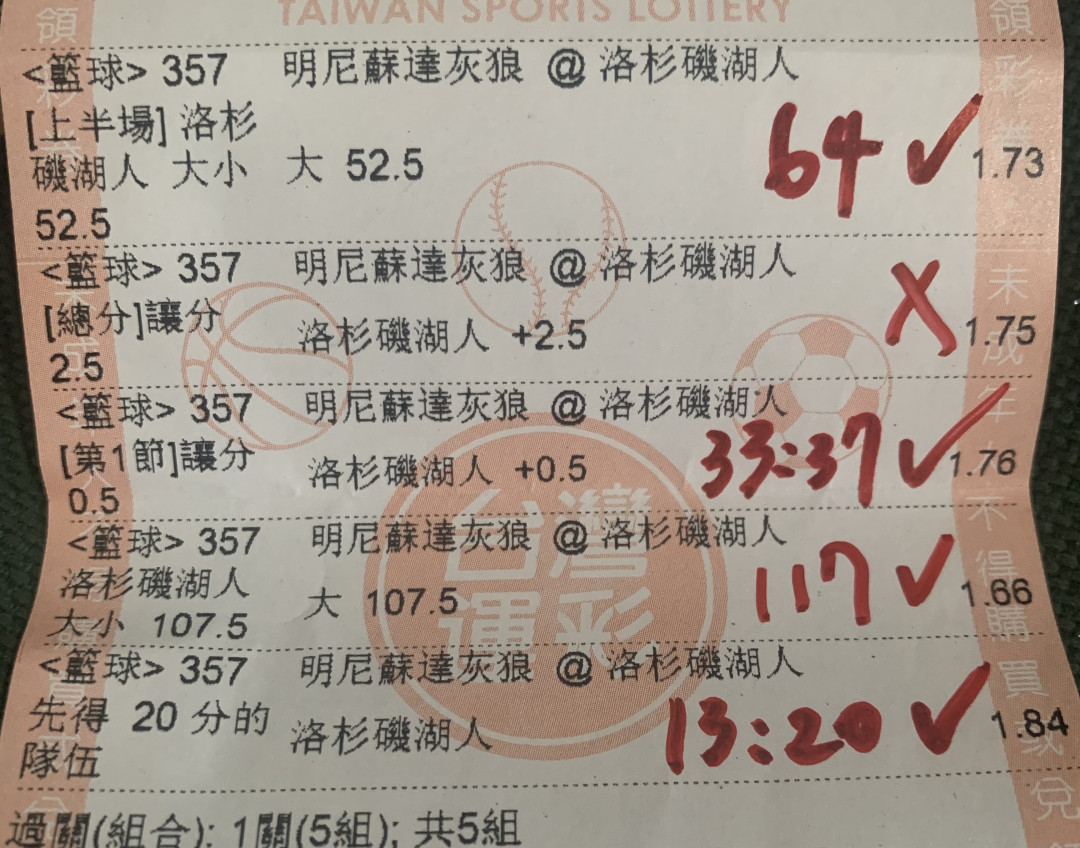 TAIWAN SPORTS LOTTERY
<籃球> 357 明尼蘇達灰狼 @ 洛杉磯湖人
[上半場] 洛杉
磯湖人 大小 大 52.5 64 ✓ 1.73
52.5
<籃球> 357 明尼蘇達灰狼 @ 洛杉磯湖人
[總分]讓分 洛杉磯湖人 +2.5 X 1.75
2.5
<籃球> 357 明尼蘇達灰狼 @ 洛杉磯湖人
[第1節]讓分 洛杉磯湖人 +0.5 33:37 ✓ 1.76
0.5
<籃球> 357 明尼蘇達灰狼 @ 洛杉磯湖人
洛杉磯湖人 大 107.5 117 ✓ 1.66
大小 107.5
<籃球> 357 明尼蘇達灰狼 @ 洛杉磯湖人
先得 20 分的 洛杉磯湖人 13:20 ✓ 1.84
隊伍
過關(組合): 1關(5組); 共5組
台灣
運彩